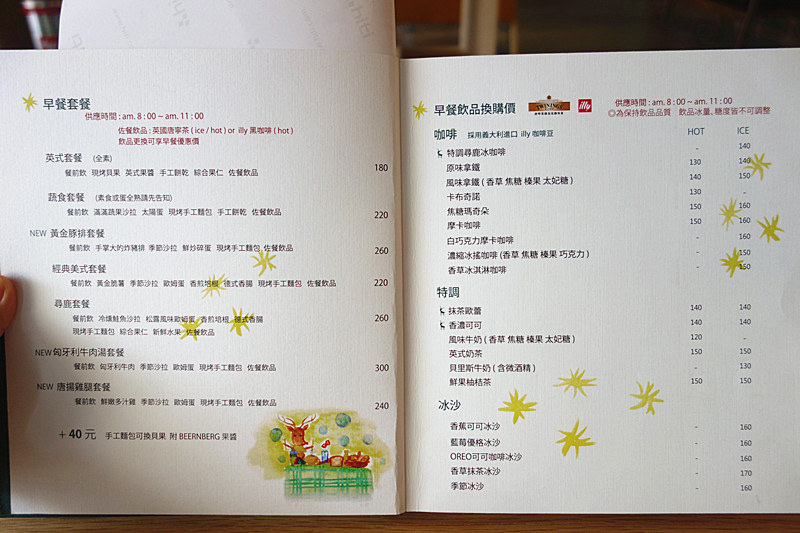 早餐套餐
供應時間 : am. 8 : 00 ~ am. 11 : 00
佐餐飲品 : 英國唐寧茶 ( ice / hot ) or illy 黑咖啡 ( hot )
飲品更換可享早餐優惠價
英式套餐 (全素)
餐前飲 現烤貝果 英式果醬 手工餅乾 綜合果仁 佐餐飲品 180
蔬食套餐 (素食或蛋全熟請先告知)
餐前飲 滿滿蔬果沙拉 太陽蛋 現烤手工麵包 手工餅乾 佐餐飲品 220
NEW 黃金豚排套餐
餐前飲 手掌大的炸豬排 季節沙拉 鮮炒碎蛋 現烤手工麵包 佐餐飲品 260
經典美式套餐
餐前飲 黃金脆薯 季節沙拉 歐姆蛋 香煎培根 德式香腸 現烤手工麵包 佐餐飲品 220
尋鹿套餐
餐前飲 冷燻鮭魚沙拉 松露風味歐姆蛋 香煎培根 德式香腸 260
現烤手工麵包 綜合果仁 新鮮水果 佐餐飲品
NEW 匈牙利牛肉湯套餐
餐前飲 匈牙利牛肉 季節沙拉 歐姆蛋 現烤手工麵包 佐餐飲品 300
NEW 唐揚雞腿套餐
餐前飲 鮮嫩多汁雞 季節沙拉 歐姆蛋 現烤手工麵包 佐餐飲品 240
+ 40 元 手工麵包可換貝果 附 BEERNBERG 果醬
早餐飲品換購價 TWININGS illy 供應時間 : am. 8 : 00 ~ am. 11 : 00
◎為保持飲品品質 飲品冰量、糖度皆不可調整
咖啡 採用義大利進口 illy 咖啡豆 HOT ICE
特調尋鹿冰咖啡 - 140
原味拿鐵 130 140
風味拿鐵 ( 香草 焦糖 榛果 太妃糖 ) 140 150
卡布奇諾 130 -
焦糖瑪奇朵 150 160
摩卡咖啡 150 160
白巧克力摩卡咖啡 - 160
濃縮冰搖咖啡 ( 香草 焦糖 榛果 巧克力 ) - 160
香草冰淇淋咖啡 - 150
特調
抹茶歐蕾 140 140
香濃可可 140 140
風味牛奶 ( 香草 焦糖 榛果 太妃糖 ) 120 -
英式奶茶 150 150
貝里斯牛奶 ( 含微酒精 ) - 130
鮮果柚桔茶 150 150
冰沙
香蕉可可冰沙 - 160
藍莓優格冰沙 - 160
OREO可可咖啡冰沙 - 160
香草抹茶冰沙 - 170
季節冰沙 - 160